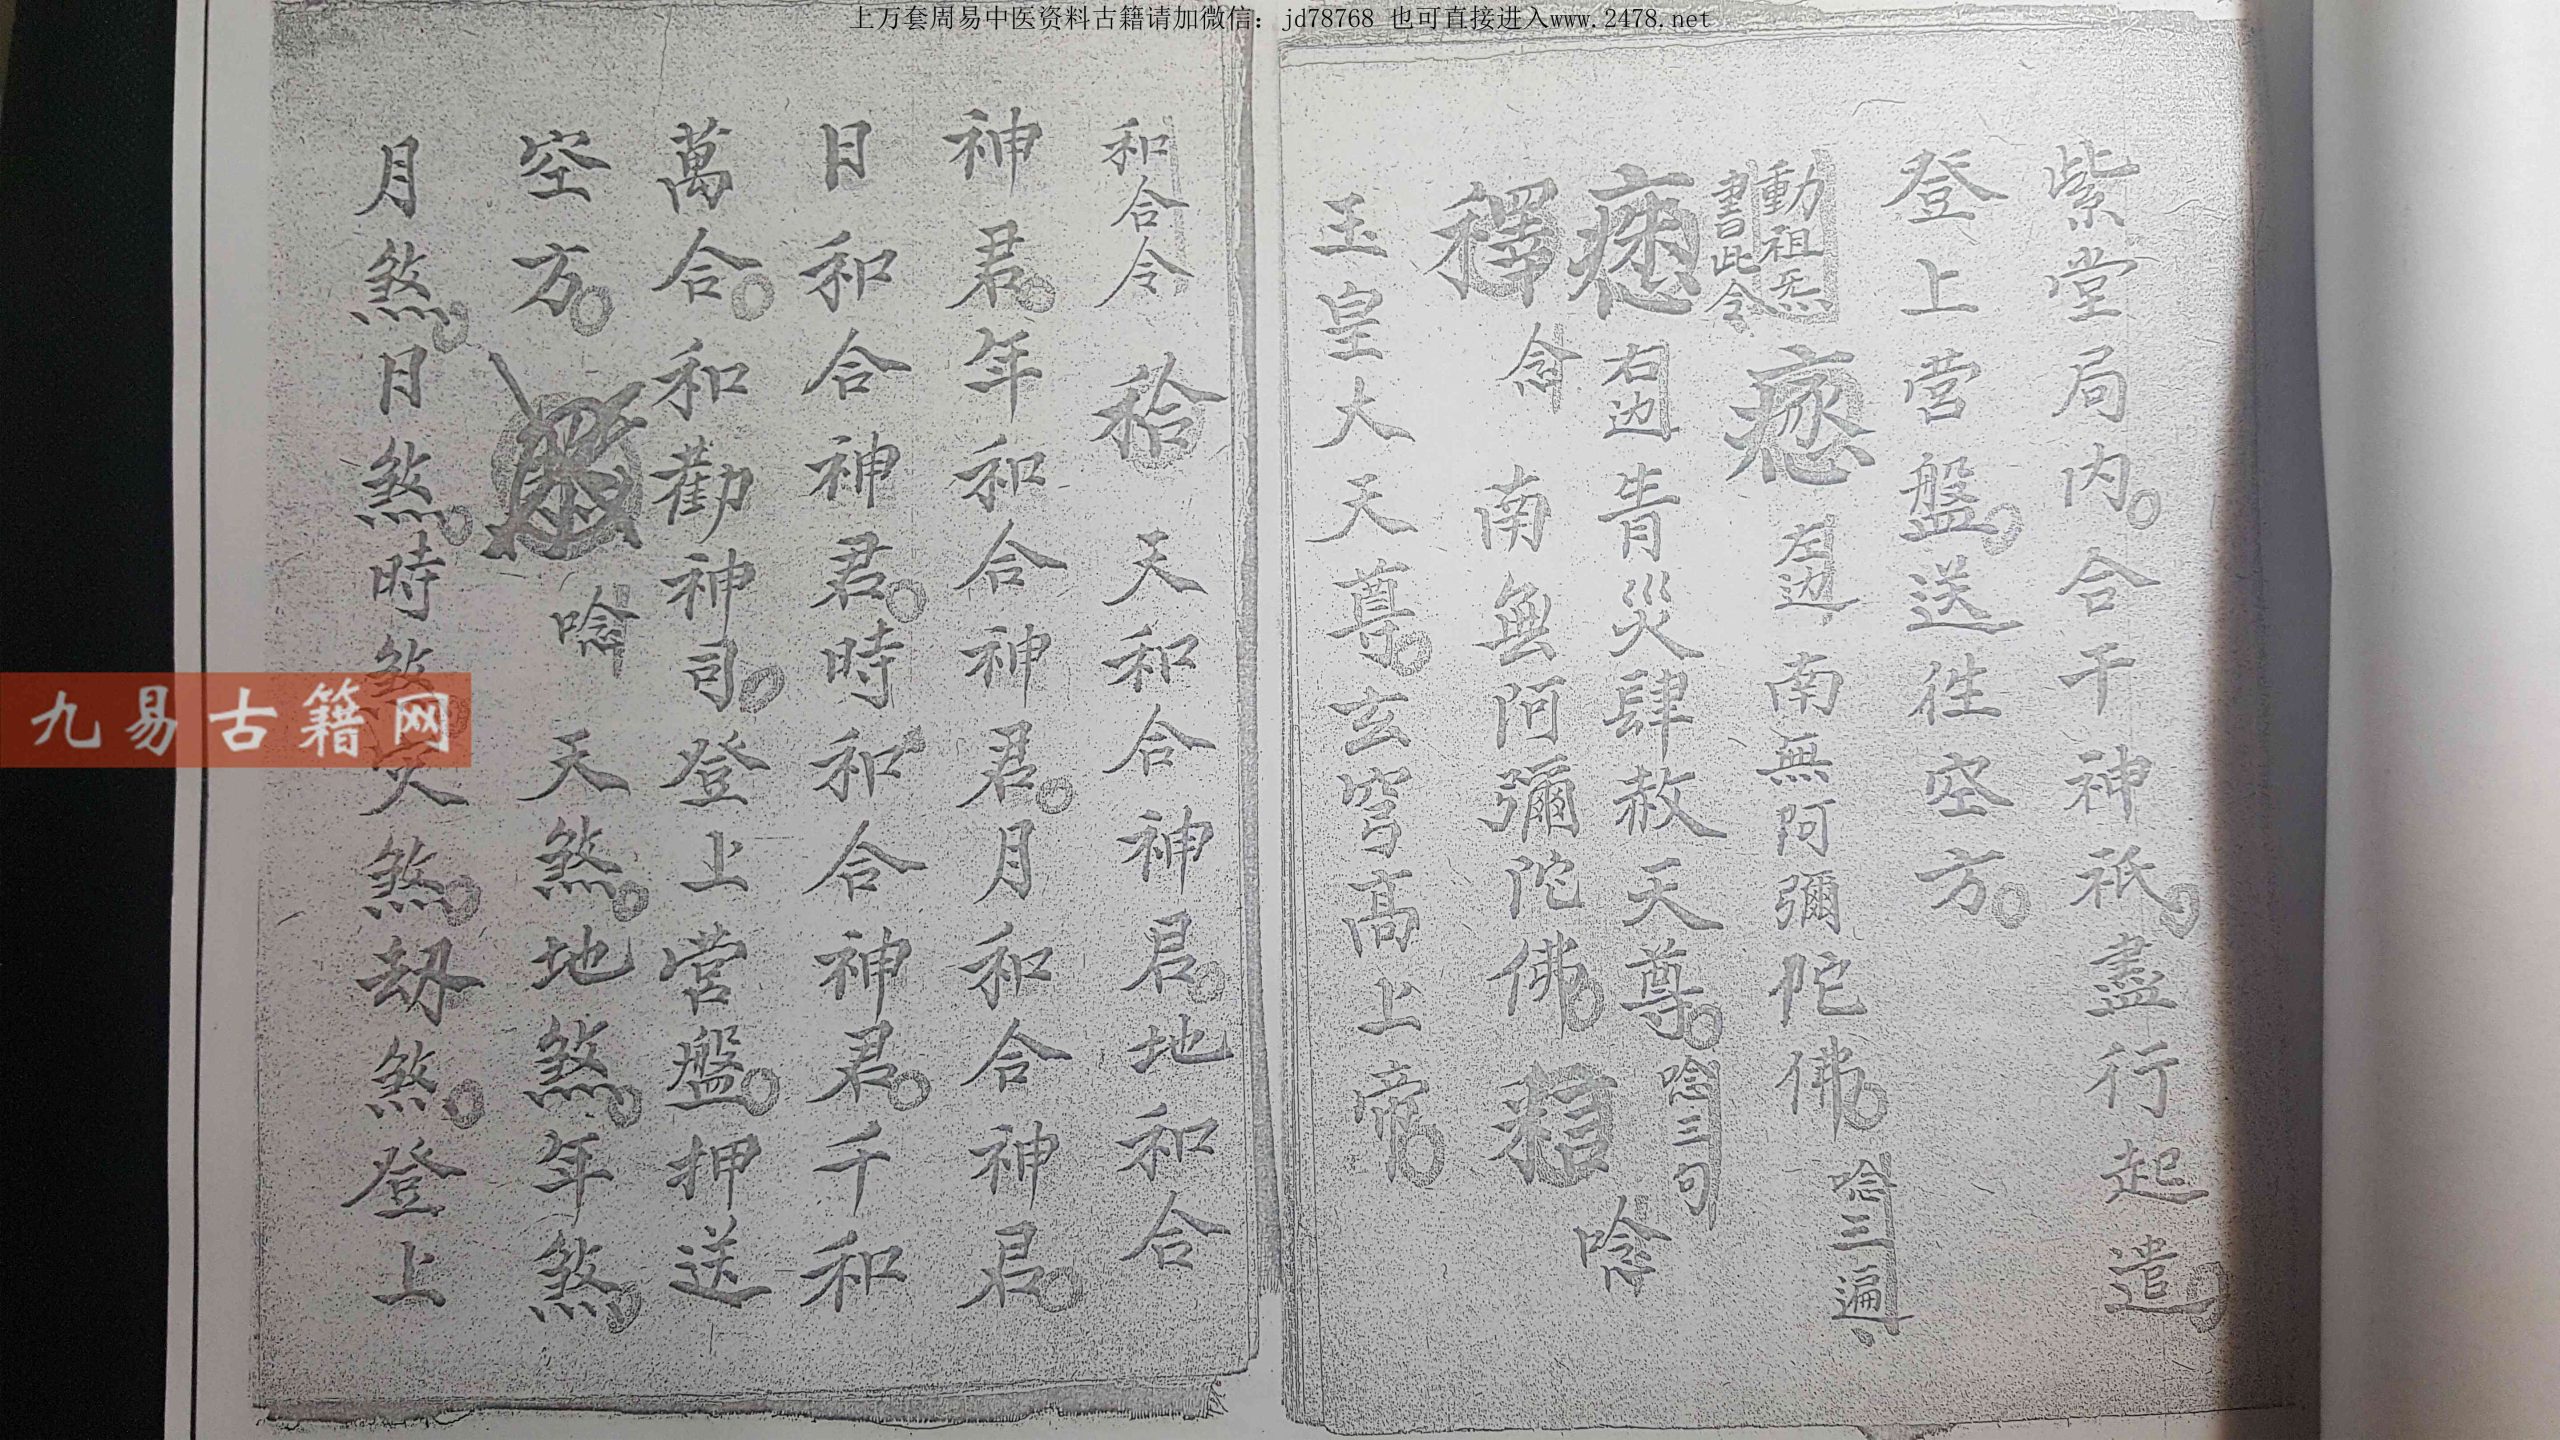 上万套周易中医资料古籍请加微信：jd78768 也可直接进入www.2478.net
紫堂局内。合干神祇。盡行起遣。
登上营盤。送往空方。
動祖炁
書此令
左边 南無阿彌陀佛。唸三遍
右边 青災肆赦天尊。唸三句
釋 念 南無阿彌陀佛。 唸
玉皇大天尊。玄穹高上帝。
和合令 天和合神君。地和合
神君。年和合神君。月和合神君。
日和合神君。時和合神君。千和
萬合。和勸神司。登上营盤。押送
空方。 唸 天煞。地煞。年煞。
月煞。日煞。時煞。灾煞。劫煞。登上
九易古籍网